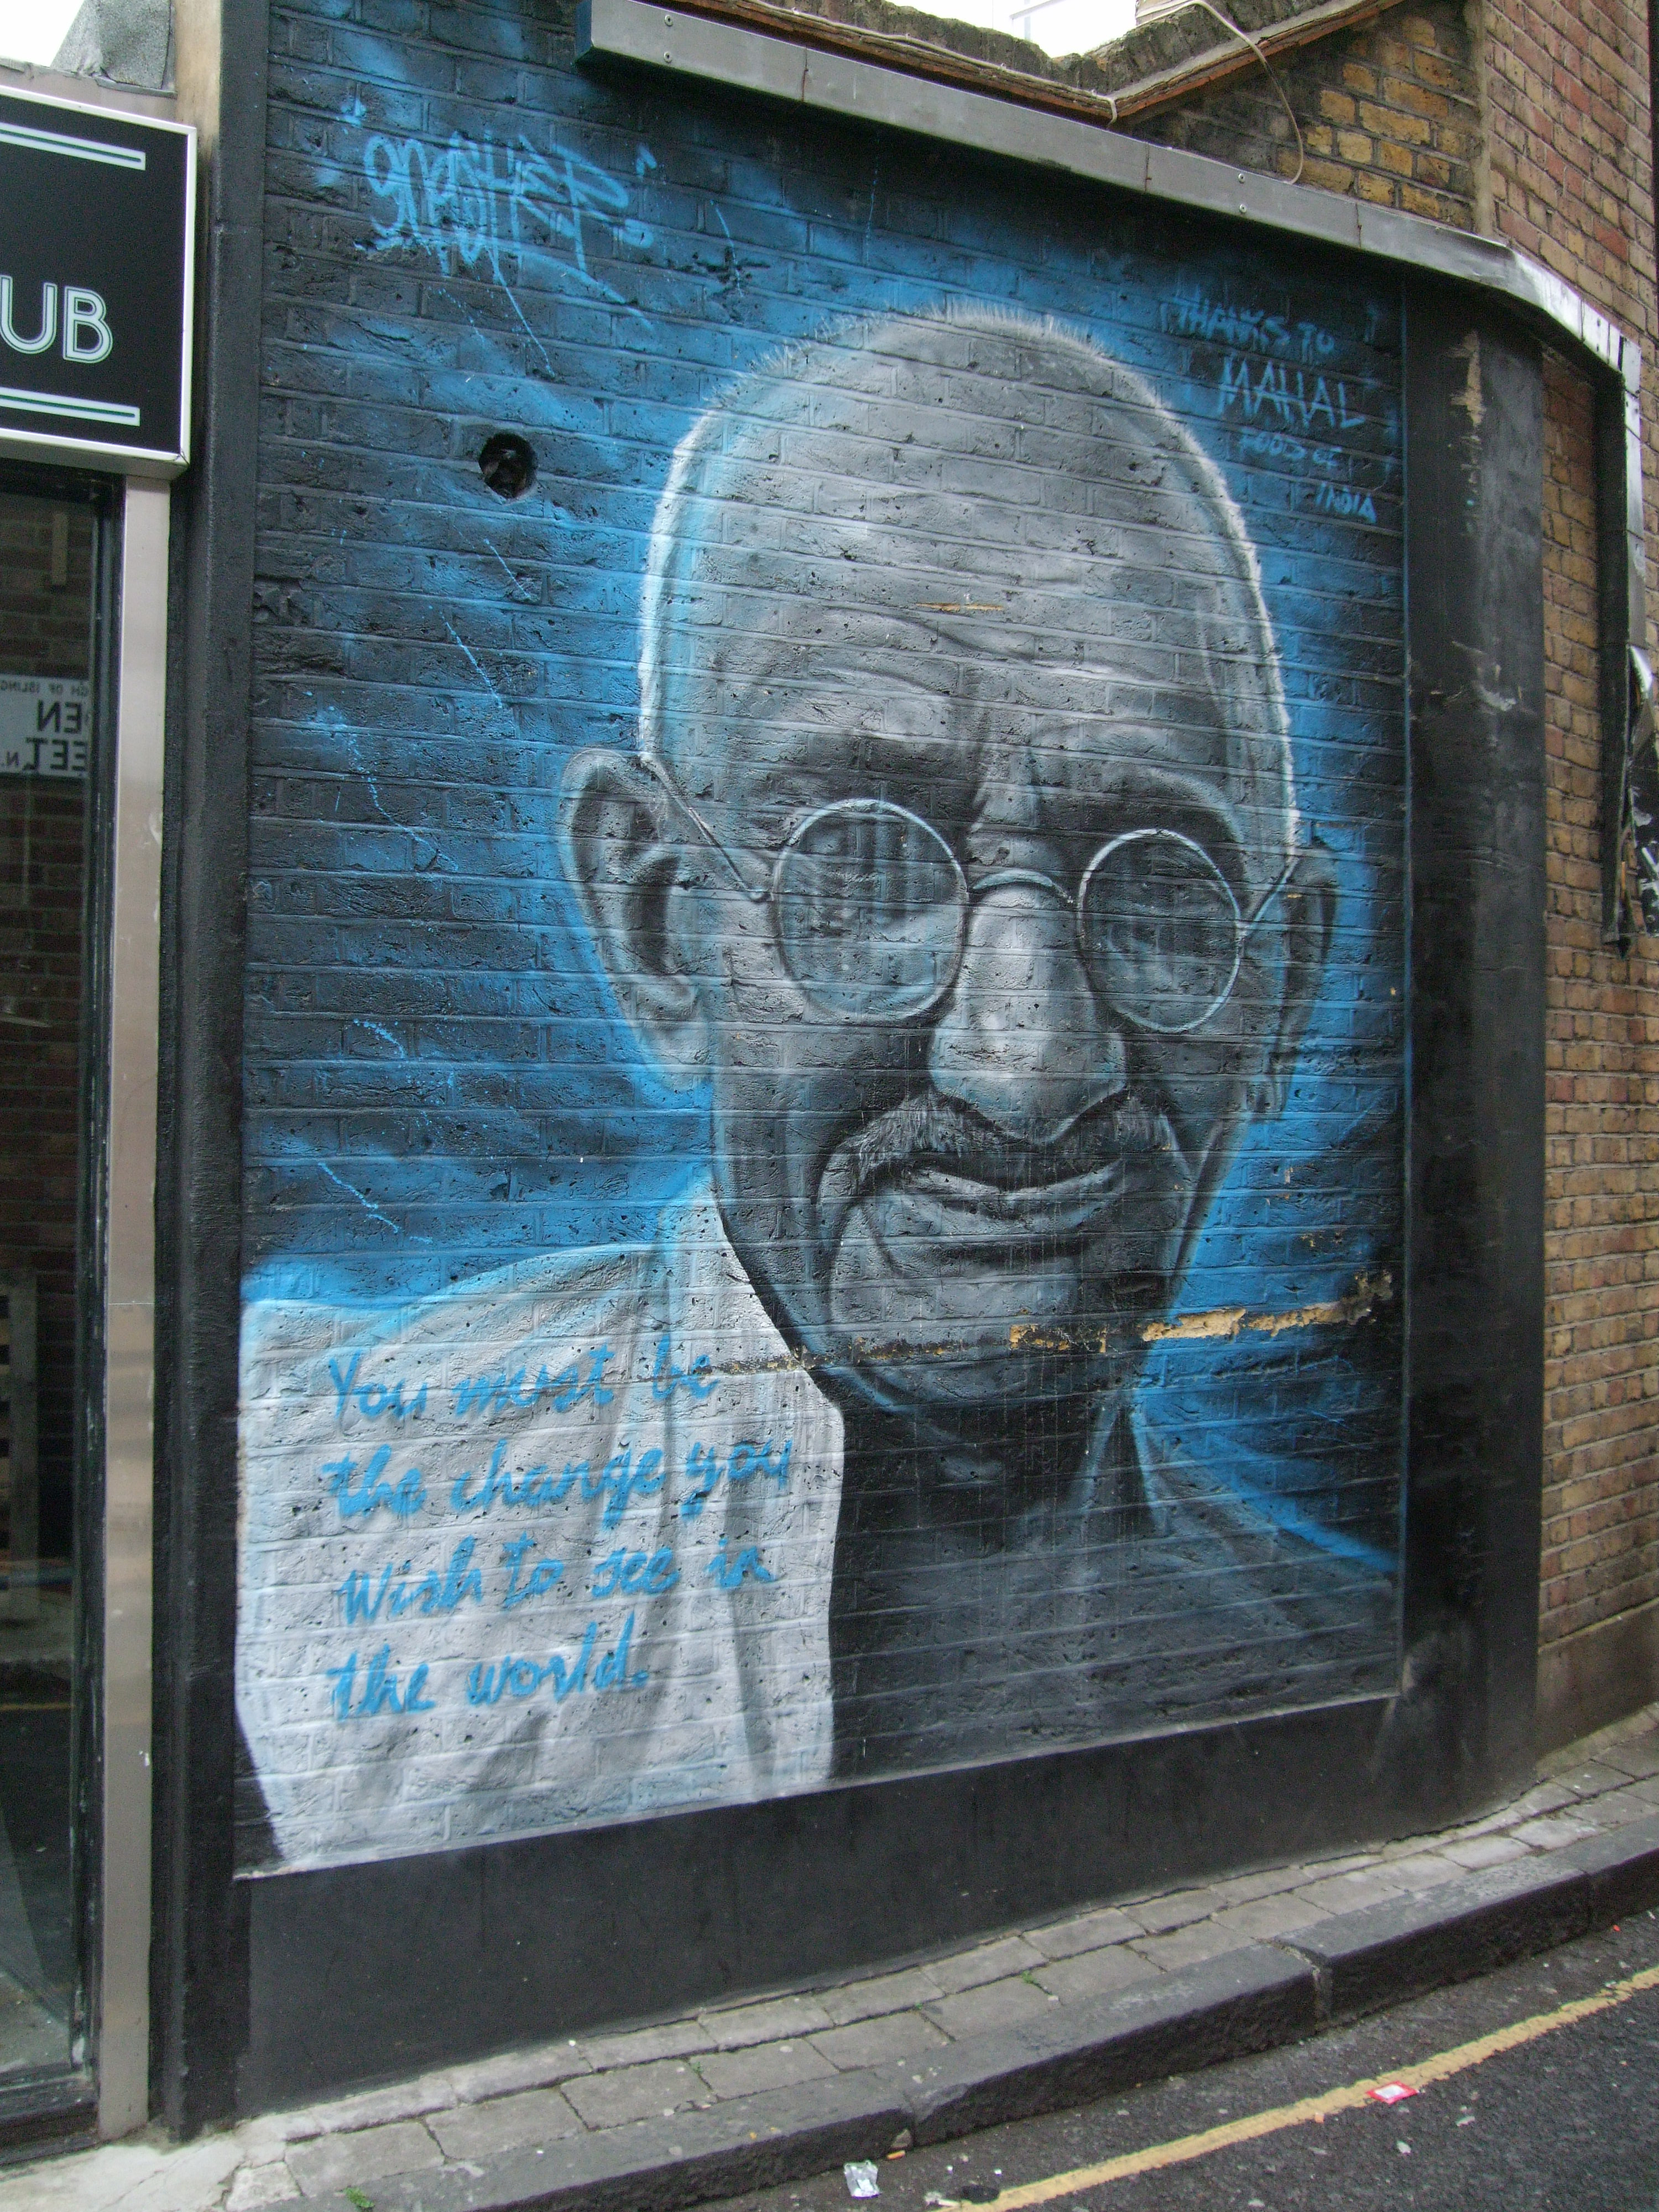 UB
GNASHER
THANKS TO
MAHAL
FOODS
INDIA
GH OF ISLING
EN
EET N.
You must be
the change you
Wish to see in
the world.